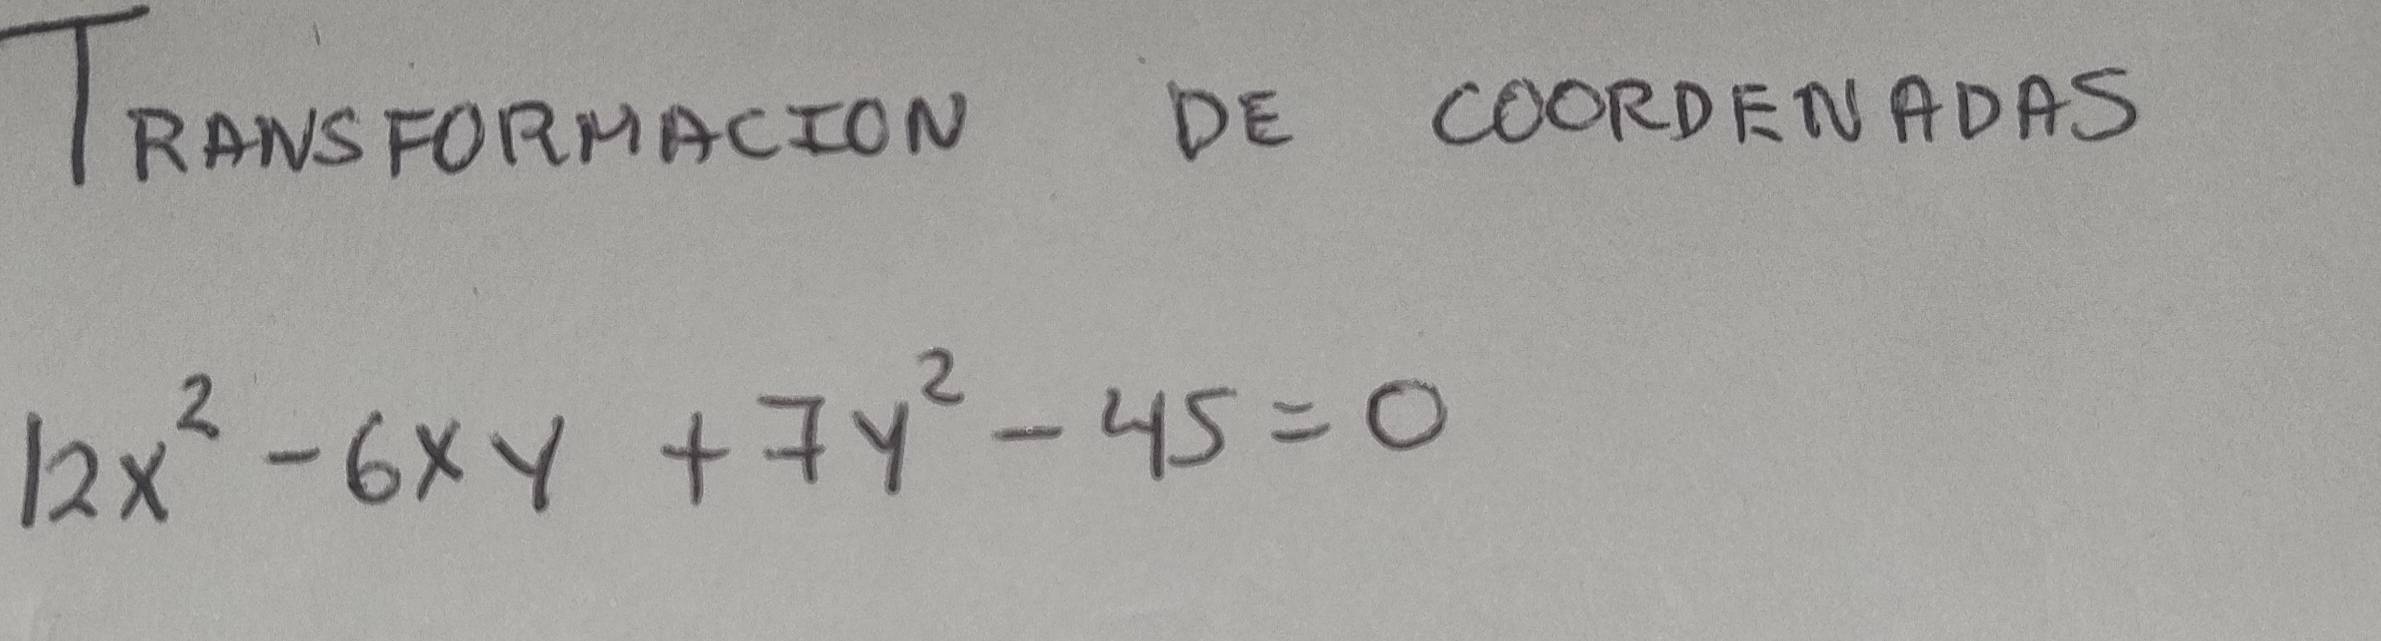 TRANSFORMACION DE COORDENADAS
12x² - 6xy + 7y² - 45 = 0